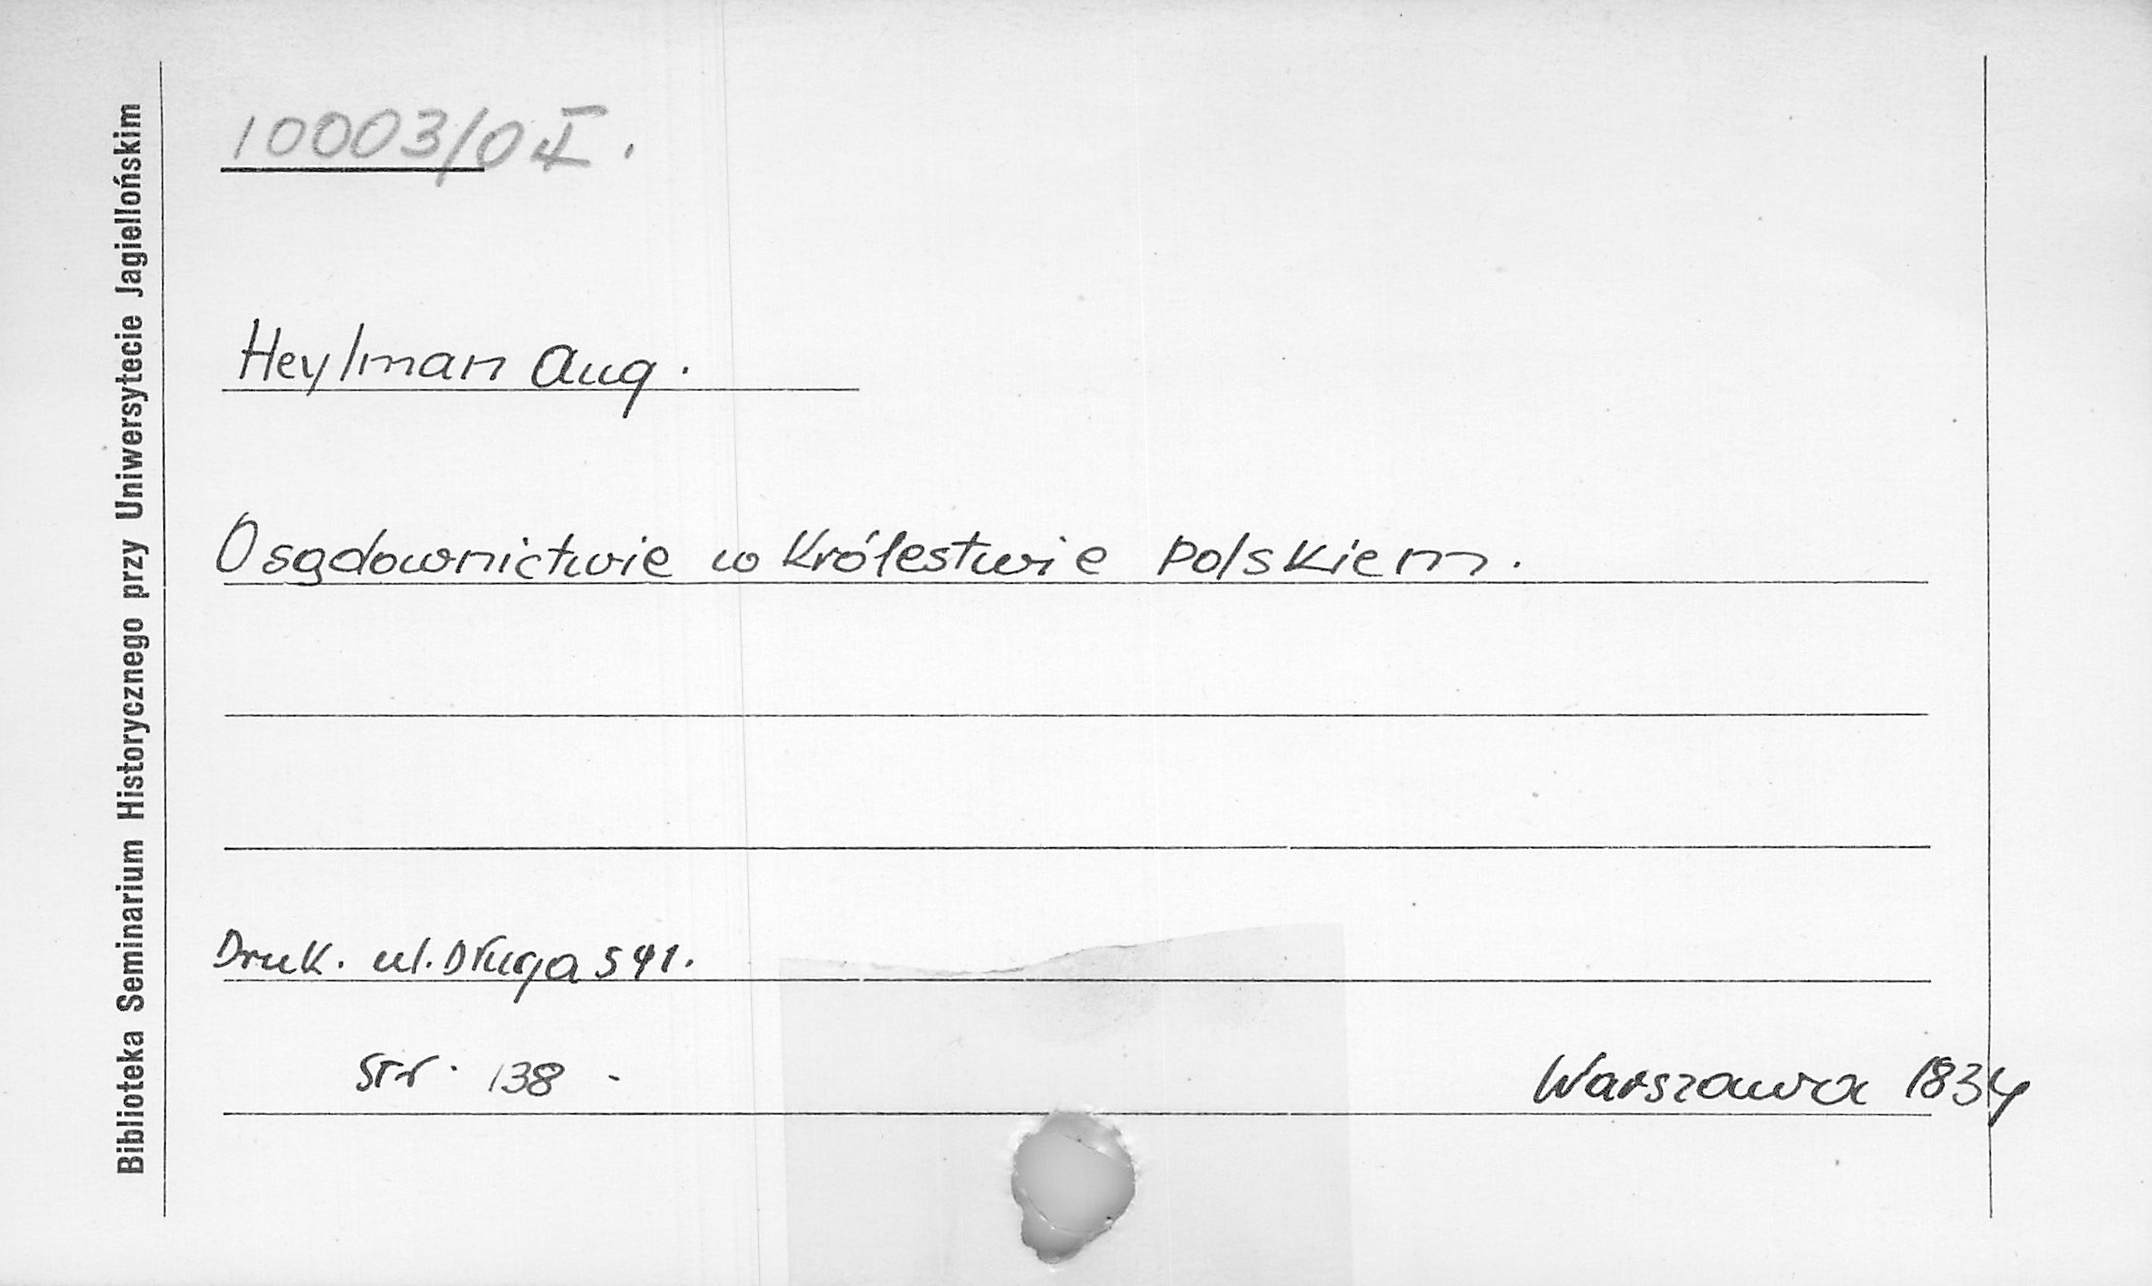 Biblioteka Seminarium Historycznego przy Uniwersytecie Jagiellońskim
10003/0 I.
Heylman Aug.
O sądownictwie w Królestwie Polskiem.
Druk. ul. Długa 541.
Str. 138 -
Warszawa 1834